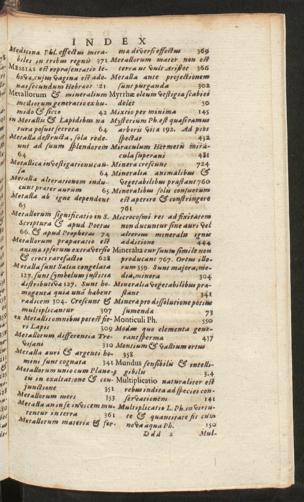 INDEX
Medicina Phil. effectus mira-
biles in tribus regnis 271
Metallorum & mineralium
mediorum generatio ex hu-
mido & sicco 42
in Metallis & Lapidibus na
tura potuit secreta 64
Metalla destructa, sola rede-
unt ad suum splendorem
64
64
Metalla alterationem indu-
cunt præter aurum 65
Metalla ab igne dependent
65
Metallorum significatio in S.
Scriptura & apud Poetas
66. & apud Prophetas 74
Metallorum præparatio est
& croci rarefactio 628
Metalla sunt Salia congelata
127. sunt symbolum justitiæ
distributivæ 127. Sunt ho-
mogenea quia unâ habent
radicem 304. Crescunt &
multiplicantur 307
ex Metallis omnibus potest fie-
ri Lapis 309
Metallorum differentia Tre-
visani 310
Metalla auri & argenti ho-
mini sunt cognata 341
Metallorum unio cum Plane-
tis in exaltatione & con-
junctione 351
Metallorum mors 153
Metalla an in se invicem mu-
tentur interra 361
Metallorum materia & for-
ma diversi effectus 369
Metallorum mater non est
terra ut vult Aristot. 366
Metalla ante projectionem
sunt purganda 302
Myrrha oleum vestigia scabiei
delet 50
Mixtio per minima 145
Mysterium Ph. est quasi ramus
arboris vitæ 192. Ad pios
spectat 432
Miraculum Hermetis mira-
cula superani 481
Minera crescunt 724
Mineralia animalibus &
vegetabilibus præstant 760
Mineralibus solis convenium
est aperire & constringere
761
Microcosmi res ad fixitatem
non ducuntur sine auri vel
alterius mineralis ignis
additione 444
Mineralia cur suum simile non
producant 767. Ortus illo-
rum 359. Sunt majora, me-
dia, minora 304
Mineralia vegetabilibus præ-
stant 341
Minera pro dissolutione potius
sumenda 73
Monticuli Ph. 550
Modus quo elementa gene-
rant sperma 437
Mensium & Gallium ortus
358
Mundus sensibilis & intelli-
gibilis 314
Multiplicatio naturaliter est
rebus indita ad species con-
servationem 141
Multiplicatio L. Ph. in virtu-
te & quantitate fit cum
nova aqua Ph. 150
Ddd 2 Mul-